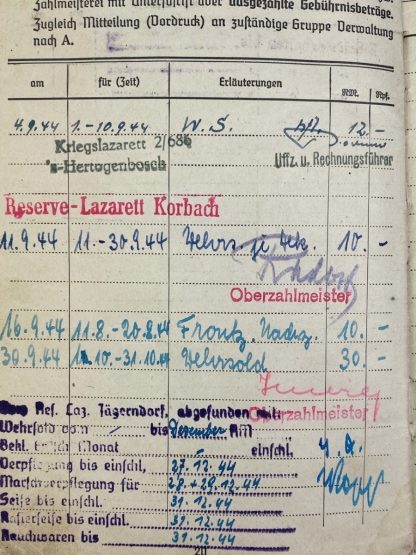 Zahlmeisterei mit Unterschrift über ausgezahlte Gebührnisbeträge.
Zugleich Mitteilung (Vordruck) an zuständige Gruppe Verwaltung
nach A.
am für (Zeit) Erläuterungen RM. Rpf.
4.9.44 1.-10.9.44 W.S. 12.-
Kriegslazarett 2/686
's-Hertogenbosch Uffz. u. Rechnungsführer
Reserve-Lazarett Korbach
11.9.44 11.-30.9.44 10.-
Oberzahlmeister
16.9.44 11.8.-20.8.44 Frontz. 10.-
30.9.44 10.-31.10.44 Wehrsold 30.-
Res. Laz. Jägerndorf, abgefunden mit:
Oberzahlmeister
Wehrsold vom bis Dezember RM
Bekl. Monat einschl.
Verpflegung bis einschl. 27.12.44
Marschverpflegung für 28.+29.12.44
Seife bis einschl. 31.12.44
Rasierseife bis einschl. 31.12.44
Rauchwaren bis 31.12.44